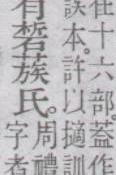 在十六部。蓋作
誤本。許以擿訓
有硩蔟氏。周禮
字